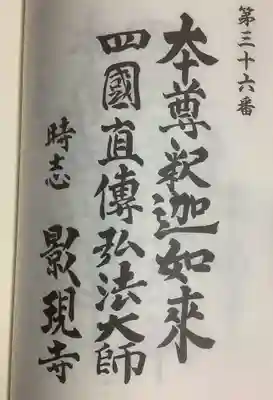 第三十六番
本尊釈迦如來
四國直傳弘法大師
時志 影現寺